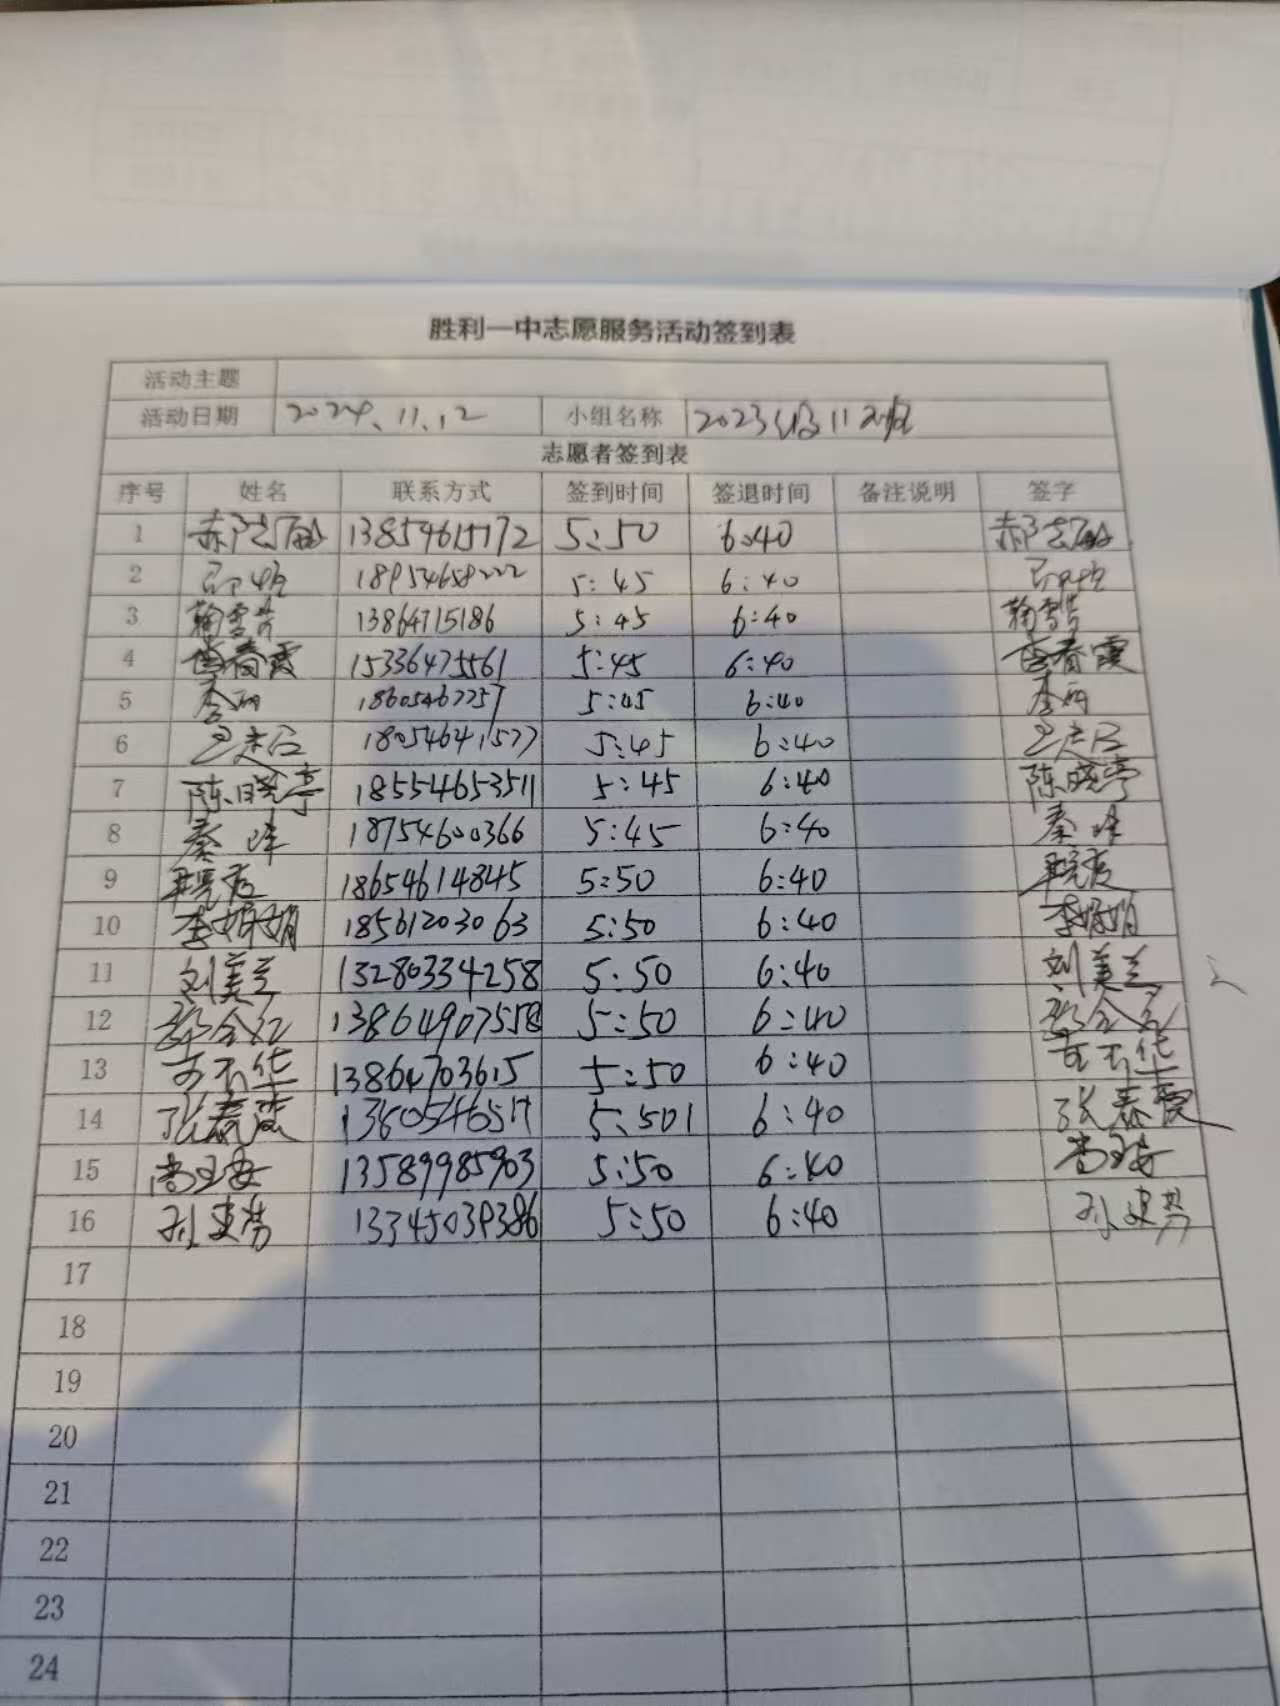 胜利一中志愿服务活动签到表
活动主题
活动日期 2024.11.12 小组名称 2023级11班
志愿者签到表
序号 姓名 联系方式 签到时间 签退时间 备注说明 签字
1 13854615172 5:50 6:40
2 18954658222 5:45 6:40
3 鞠雪芳 13864715186 5:45 6:40 鞠雪芳
4 春霞 15336475561 5:45 6:40 春霞
5 李丽 5:45 6:40 李丽
6 18054641577 5:45 6:40
7 陈晓亭 18554653511 5:45 6:40 陈晓亭
8 秦峰 18754600366 5:45 6:40 秦峰
9 18654614845 5:50 6:40
10 李娟娟 18561203063 5:50 6:40 李娟娟
11 刘美兰 13280334258 5:50 6:40 刘美兰
12 13864907558 5:50 6:40
13 13864703615 5:50 6:40
14 张春霞 5:50 6:40 张春霞
15 尚玉安 13589985903 5:50 6:40 尚玉安
16 孙建势 13345039386 5:50 6:40 孙建势
17
18
19
20
21
22
23
24